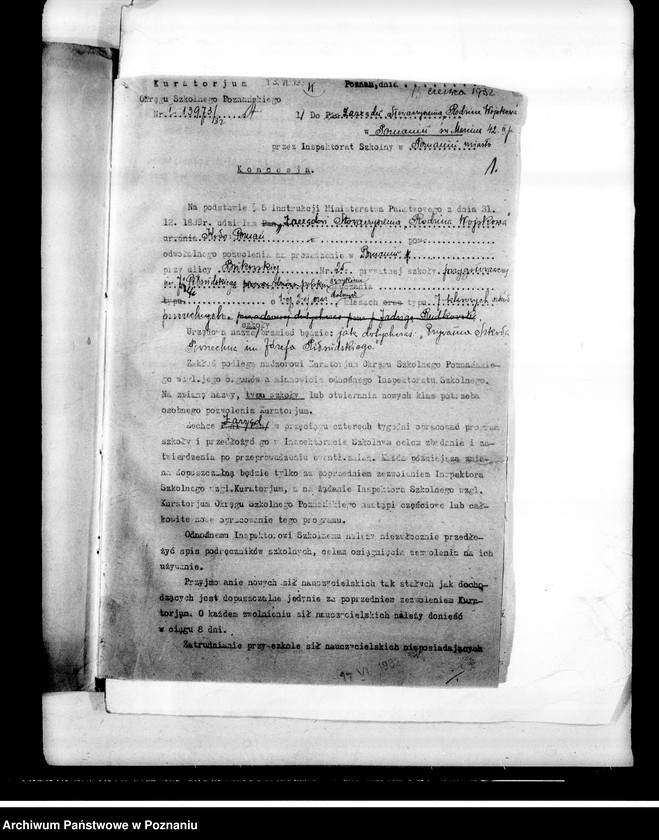 Kuratorjum
Poznań, dnia czerwca 1932
Okręgu Szkolnego Poznańskiego
Nr. I-13973/32
1/ Do Zarządu Stowarzyszenia Rodzina Wojskowa
w Poznaniu
przez Inspektorat Szkolny w Poznaniu miasto
1.
Koncesja.
Na podstawie § 5 instrukcji Ministerstwa Państwowego z dnia 31.
12. 1839r. udzielam Zarządowi Stowarzyszenia „Rodzina Wojskowa"
Koło Poznań
odwołalnego pozwolenia na prowadzenie w Poznaniu
przy ulicy Bukowskiej Nr. prywatnej szkoły
im. J. Piłsudskiego
typu o klasach oraz typu
powszechnych. prowadzonej dotychczas przez p. Jadwigę Rutkowską,
szkoły
Urzędowa nazwa brzmieć będzie: jak dotychczas: „Prywatna Szkoła
Powszechna im. Józefa Piłsudskiego."
Zakład podlega nadzorowi Kuratorjum Okręgu Szkolnego Poznańskie-
go wzgl. jego organów a mianowicie odnośnego Inspektoratu Szkolnego.
Na zmianę nazwy, typu szkoły lub otwierania nowych klas potrzeba
osobnego pozwolenia Kuratorjum.
Zechce Zarząd w przeciągu czterech tygodni opracować program
szkoły i przedłożyć go w Inspektoracie Szkolnym celem zbadania i za-
twierdzenia po przeprowadzeniu event. zmian. Każda późniejsza zmia-
na dopuszczalną będzie tylko za poprzedniem zezwoleniem Inspektora
Szkolnego wzgl. Kuratorjum, a na żądanie Inspektora Szkolnego wzgl.
Kuratorjum Okręgu Szkolnego Poznańskiego nastąpi częściowe lub cał-
kowite nowe opracowanie tego programu.
Odnośnemu Inspektorowi Szkolnemu należy niezwłocznie przedło-
żyć spis podręczników szkolnych, celem osiągnięcia zezwolenia na ich
używanie.
Przyjmowanie nowych sił nauczycielskich tak stałych jak docho-
dzących jest dopuszczalne jedynie za poprzedniem zezwoleniem Kura-
torjum. O każdem zwolnieniu sił nauczycielskich należy donieść
w ciągu 8 dni.
Zatrudnianie przy szkole sił nauczycielskich nieposiadających
17 VI. 1932
Archiwum Państwowe w Poznaniu